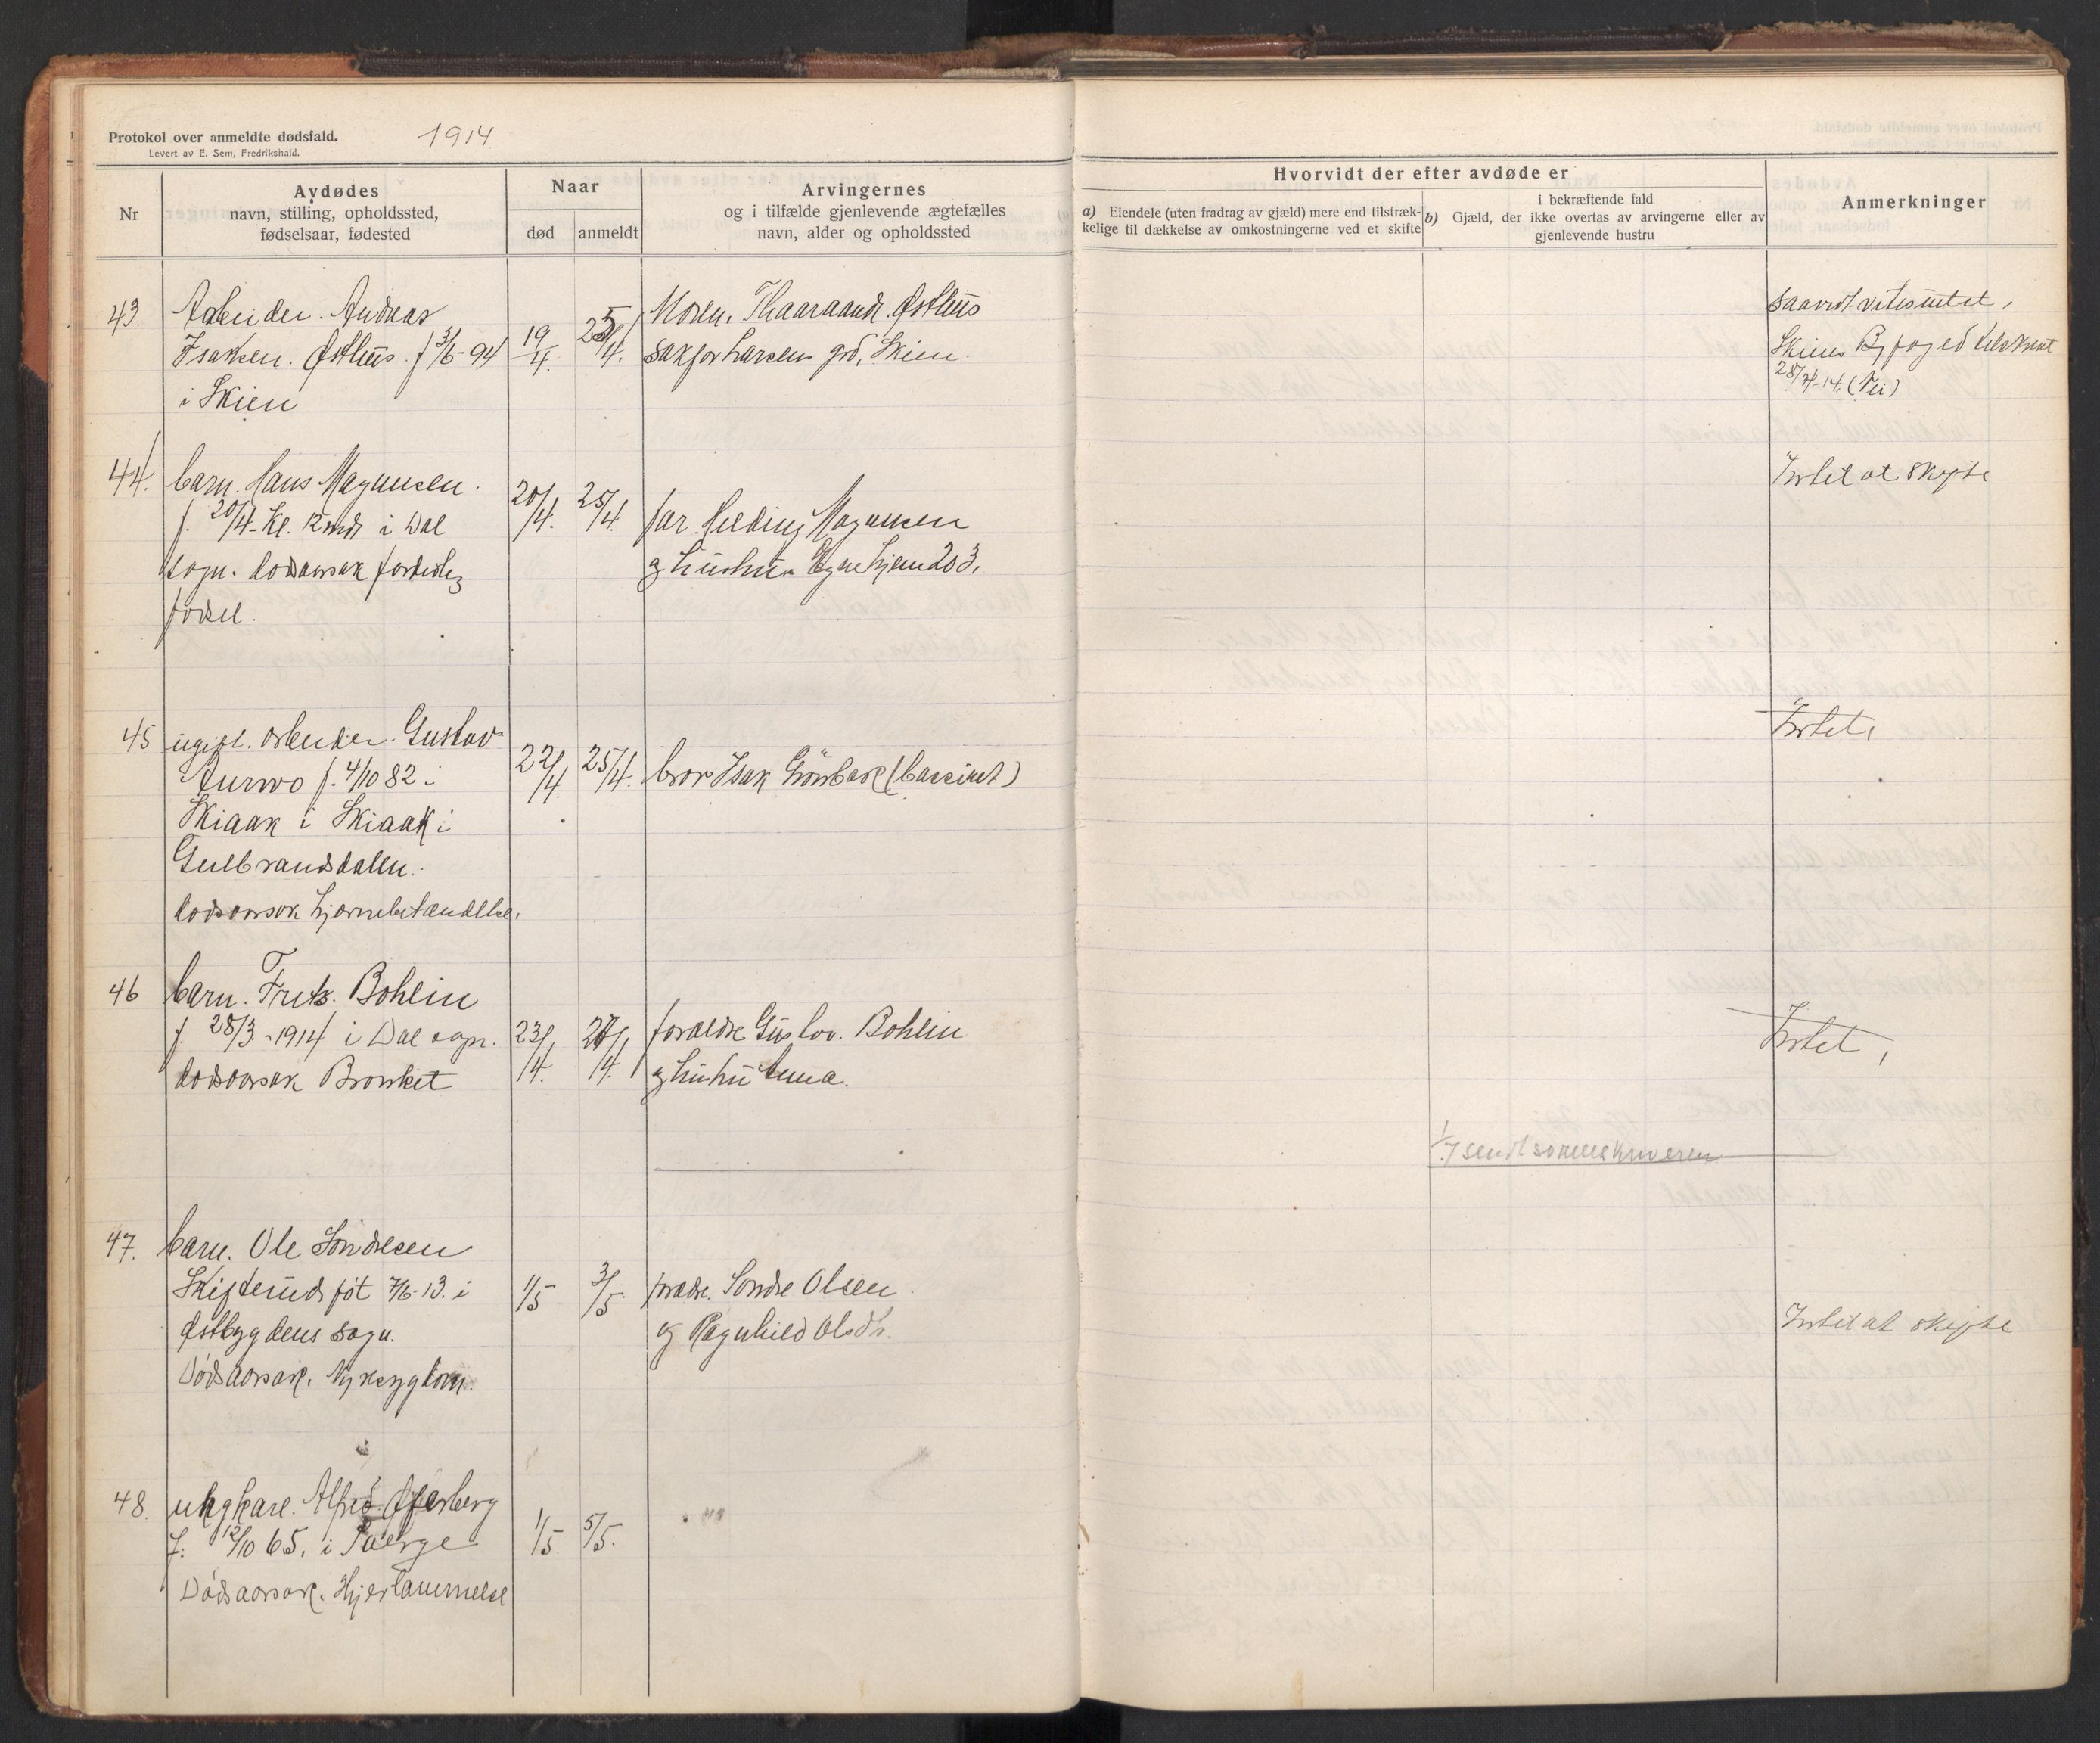 Protokol over anmeldte dødsfald.
Levert av E. Sem, Fredrikshald.
1914
Nr
Avdødes
navn, stilling, opholdssted,
fødselsaar, fødested
Naar
død
anmeldt
Arvingernes
og i tilfælde gjenlevende ægtefælles
navn, alder og opholdssted
Hvorvidt der efter avdøde er
a) Eiendele (uten fradrag av gjæld) mere end tilstræk-
kelige til dækkelse av omkostningerne ved et skifte
i bekræftende fald
b) Gjæld, der ikke overtas av arvingerne eller av
gjenlevende hustru
Anmerkninger
43.
Arbeider. Andreas
Isaksen. Østhus. f 3/6-94
i Skien
19/4.
25/4.
Moren, Østhus
Larsens grd, Skien.
saavidt vites intet,
Skiens Byfoged tilskrevet
28/4-14. (Nei)
44.
barn. Hans Magnusen.
f. 20/4- Kl. 12 i Dal
sogn. dødsaarsak fortidlig
fødsel.
20/4.
25/4.
far. Magnusen
og hustru Egnehjem 203.
Intet at skifte
45
ugift. arbeider. Gustav
f. 4/10 82 i
Skiaak i Skiaak i
Gulbrandsdalen.
dødsaarsak hjernebetændelse.
22/4.
25/4.
bror Isak (Cassiret)
Intet,
46
barn. Frits. Bohlin
f. 28/3.-1914 i Dal sogn.
dødsaarsak Bronket
23/4.
27/4.
foraldre Gustav. Bohlin
og hustru Anna.
Intet,
1/7 sendt sorenskriveren
47.
barn. Ole Søndresen
Skifterud føt 7/6-13. i
Østbygdens sogn.
Dødsaarsak. Nyresygdom.
1/5
3/5
foradre. Sondre Olsen
og Ragnhild Olsdtr.
Intet at skifte
48.
ungkarl. Alfred
f. 12/10 65. i Sverge
Dødsaarsak. Hjertlammelse
1/5
5/5.